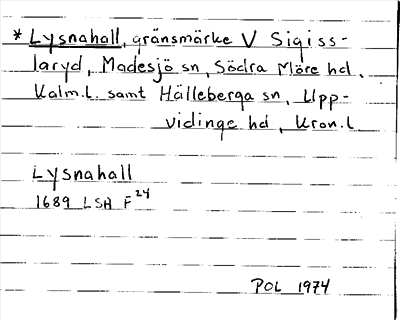 * Lysnahall, gränsmärke V Sigiss-
laryd, Madesjö sn, Södra Möre hd,
Kalm.l. samt Hälleberga sn, Upp-
vidinge hd, Kron.l
Lysnahall
1689 LSA F24
POL 1974